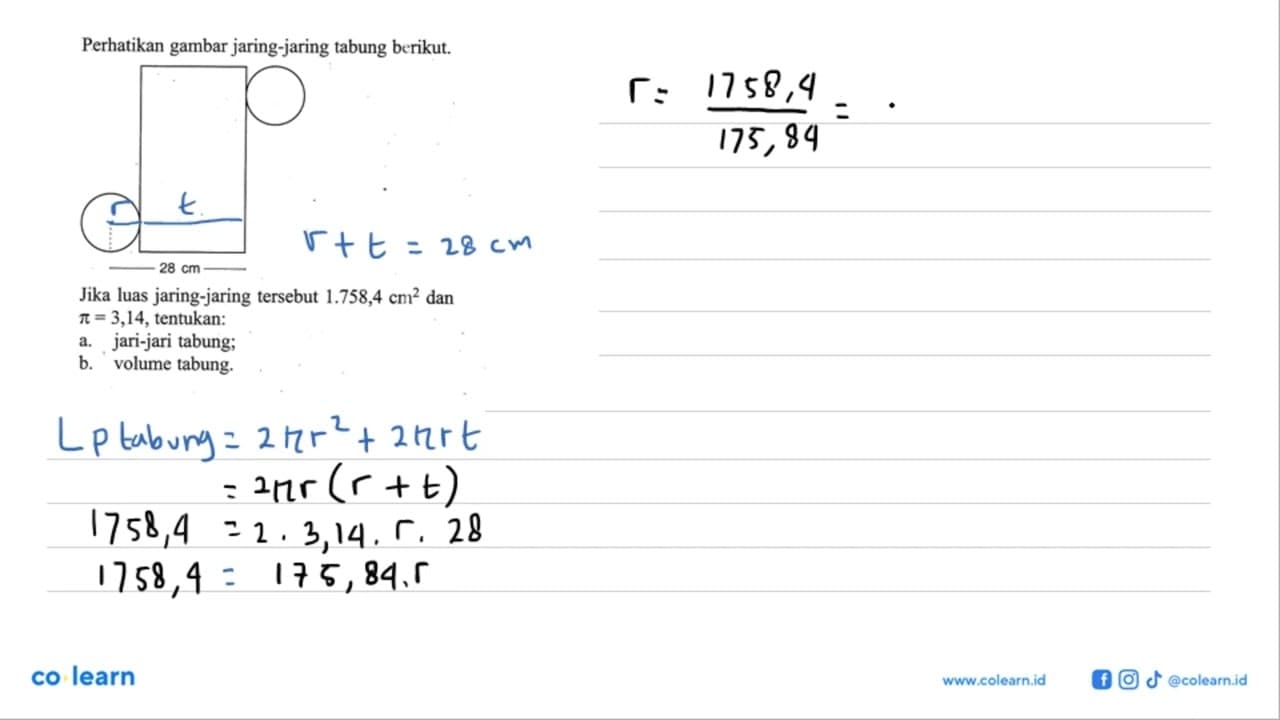 Perhatikan gambar jaring-jaring tabung berikut.
r t
r + t = 28 cm
28 cm
Jika luas jaring-jaring tersebut 1.758,4 cm² dan
π = 3,14, tentukan:
a. jari-jari tabung;
b. volume tabung.
Lp tabung = 2πr² + 2πrt
= 2πr (r + t)
1758,4 = 2 . 3,14 . r . 28
1758,4 = 175,84.r
r = 1758,4 / 175,84 =
co learn
www.colearn.id
@colearn.id